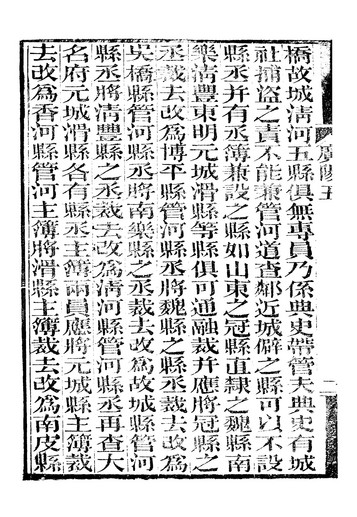 橋故城淸河五縣俱無專員乃係典史帶管夫典史有城
社捕盜之責不能兼管河道查鄰近城僻之縣可以不設
縣丞并有丞簿兼設之縣如山東之冠縣直隸之魏縣南
樂淸豐東明元城滑縣等縣俱可通融裁并應將冠縣之
丞裁去改為博平縣管河縣丞將魏縣之縣丞裁去改為
吳橋縣管河縣丞將南樂縣之丞裁去改為故城縣管河
縣丞將淸豐縣之丞裁去改為淸河縣管河縣丞再查大
名府元城滑縣各有縣丞主簿兩員應將元城縣主簿裁
去改為香河縣管河主簿將滑縣主簿裁去改為南皮縣